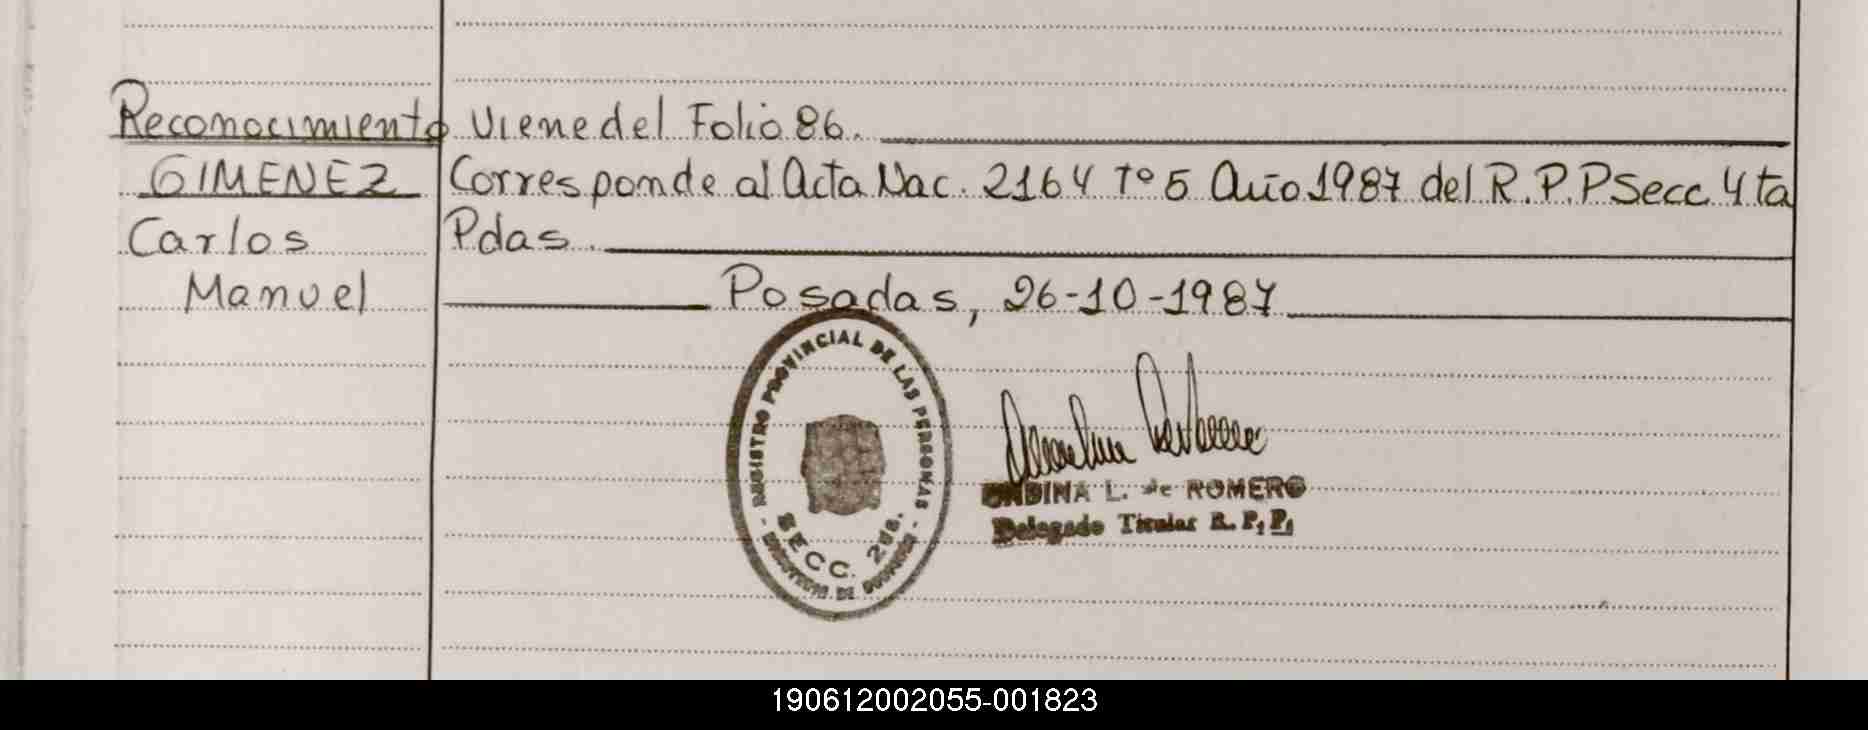 Reconocimiento Viene del Folio 86.
GIMENEZ Corresponde al Acta Nac. 2164 Tº 5 Año 1987 del R.P.P Secc 4 ta
Carlos Pdas.
Manuel Posadas, 26-10-1987
- REGISTRO PROVINCIAL DE LAS PERSONAS -
SECC. 2da.
ONDINA L. de ROMERO
Delegado Titular R. P. P.
190612002055-001823